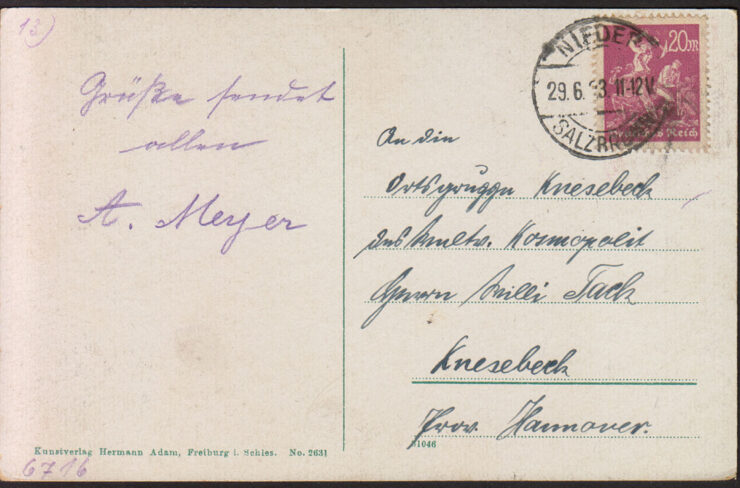 13)
Grüße sendet
allen
A. Meyer
NIEDER
29.6.23.11-12V.
SALZBRUNN
20M
Deutsches Reich
An die
Ortsgruppe Knesebeck
des
Kosmopolit
Herrn Willi Tack
Knesebeck
Prov. Hannover.
Kunstverlag Hermann Adam, Freiburg i. Schles. No. 2631
31046
6716